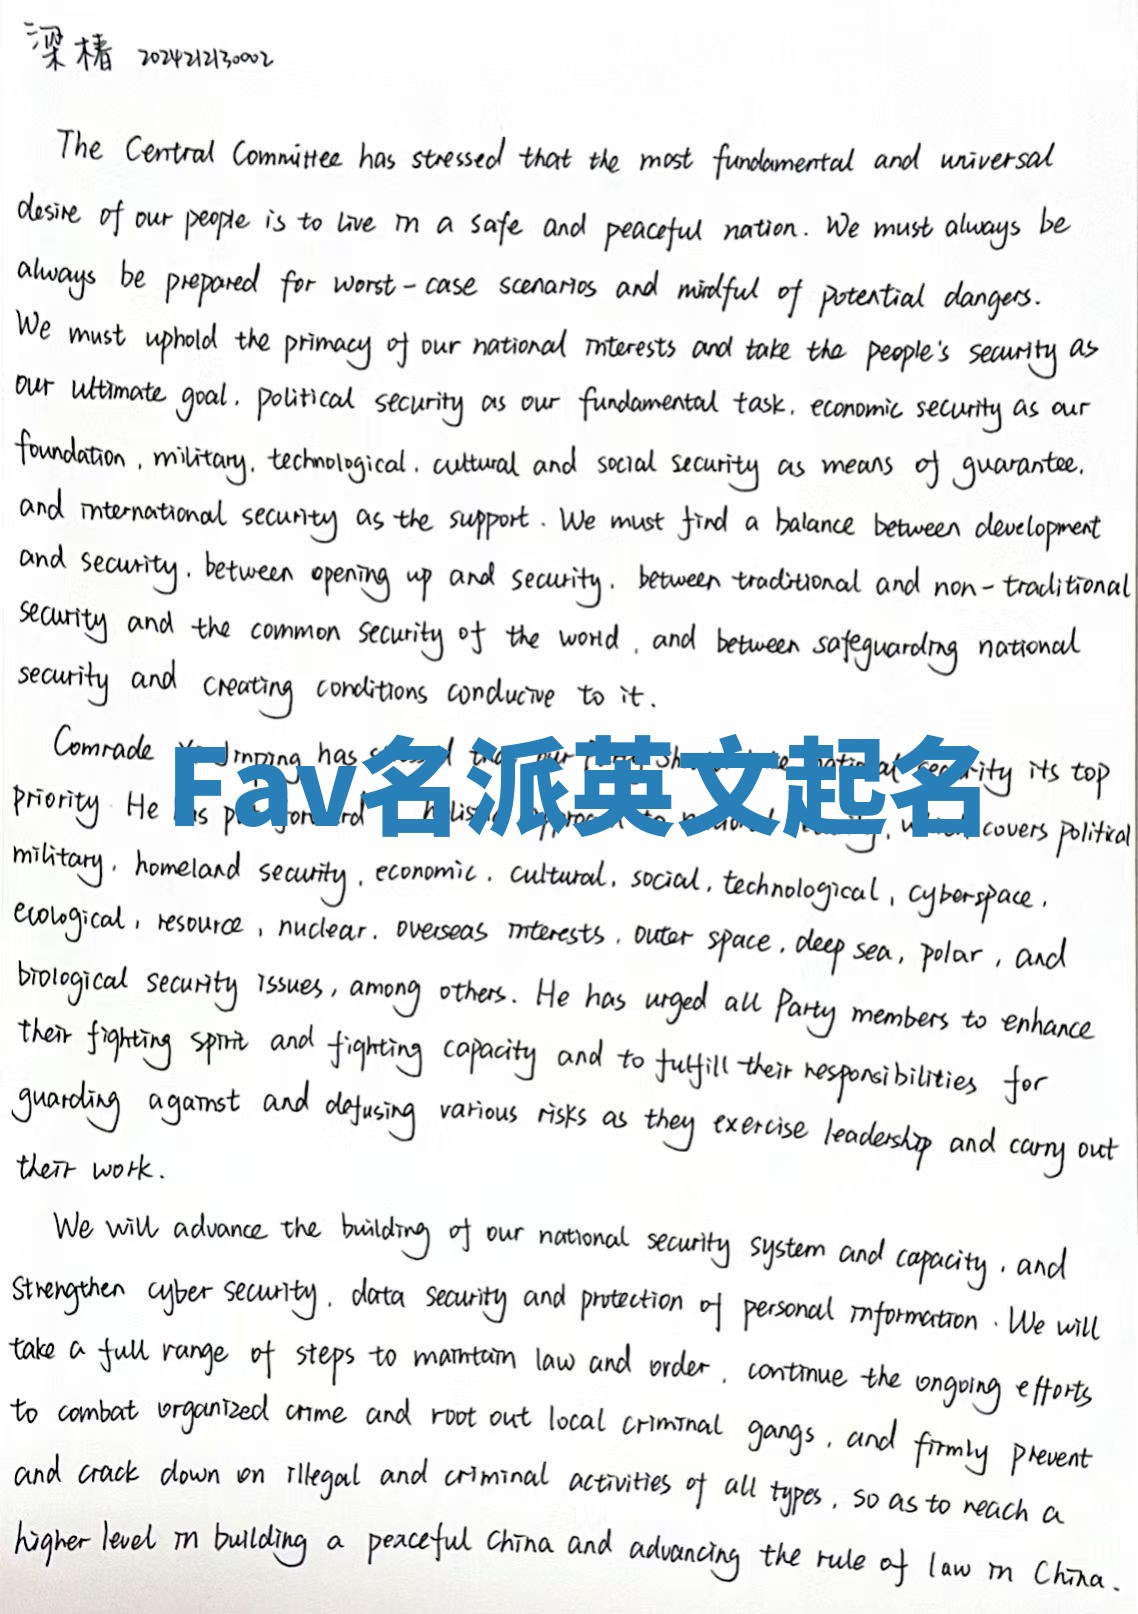 梁椿 2024212130002
The Central Committee has stressed that the most fundamental and universal
desire of our people is to live in a safe and peaceful nation. We must always be
always be prepared for worst-case scenarios and mindful of potential dangers.
We must uphold the primacy of our national interests and take the people's security as
our ultimate goal, political security as our fundamental task, economic security as our
foundation, military, technological, cultural and social security as means of guarantee,
and international security as the support. We must find a balance between development
and security, between opening up and security, between traditional and non-traditional
security and the common security of the world, and between safeguarding national
security and creating conditions conducive to it.
Comrade Jinping has that our national security its top
Fav名派英文起名
priority. He has put forward holistic approach to national covers political
military, homeland security, economic, cultural, social, technological, cyberspace,
ecological, resource, nuclear, overseas interests, outer space, deep sea, polar, and
biological security issues, among others. He has urged all Party members to enhance
their fighting spirit and fighting capacity and to fulfill their responsibilities for
guarding against and defusing various risks as they exercise leadership and carry out
their work.
We will advance the building of our national security system and capacity, and
strengthen cyber security, data security and protection of personal information. We will
take a full range of steps to maintain law and order, continue the ongoing efforts
to combat organized crime and root out local criminal gangs, and firmly prevent
and crack down on illegal and criminal activities of all types, so as to reach a
higher level in building a peaceful China and advancing the rule of law in China.